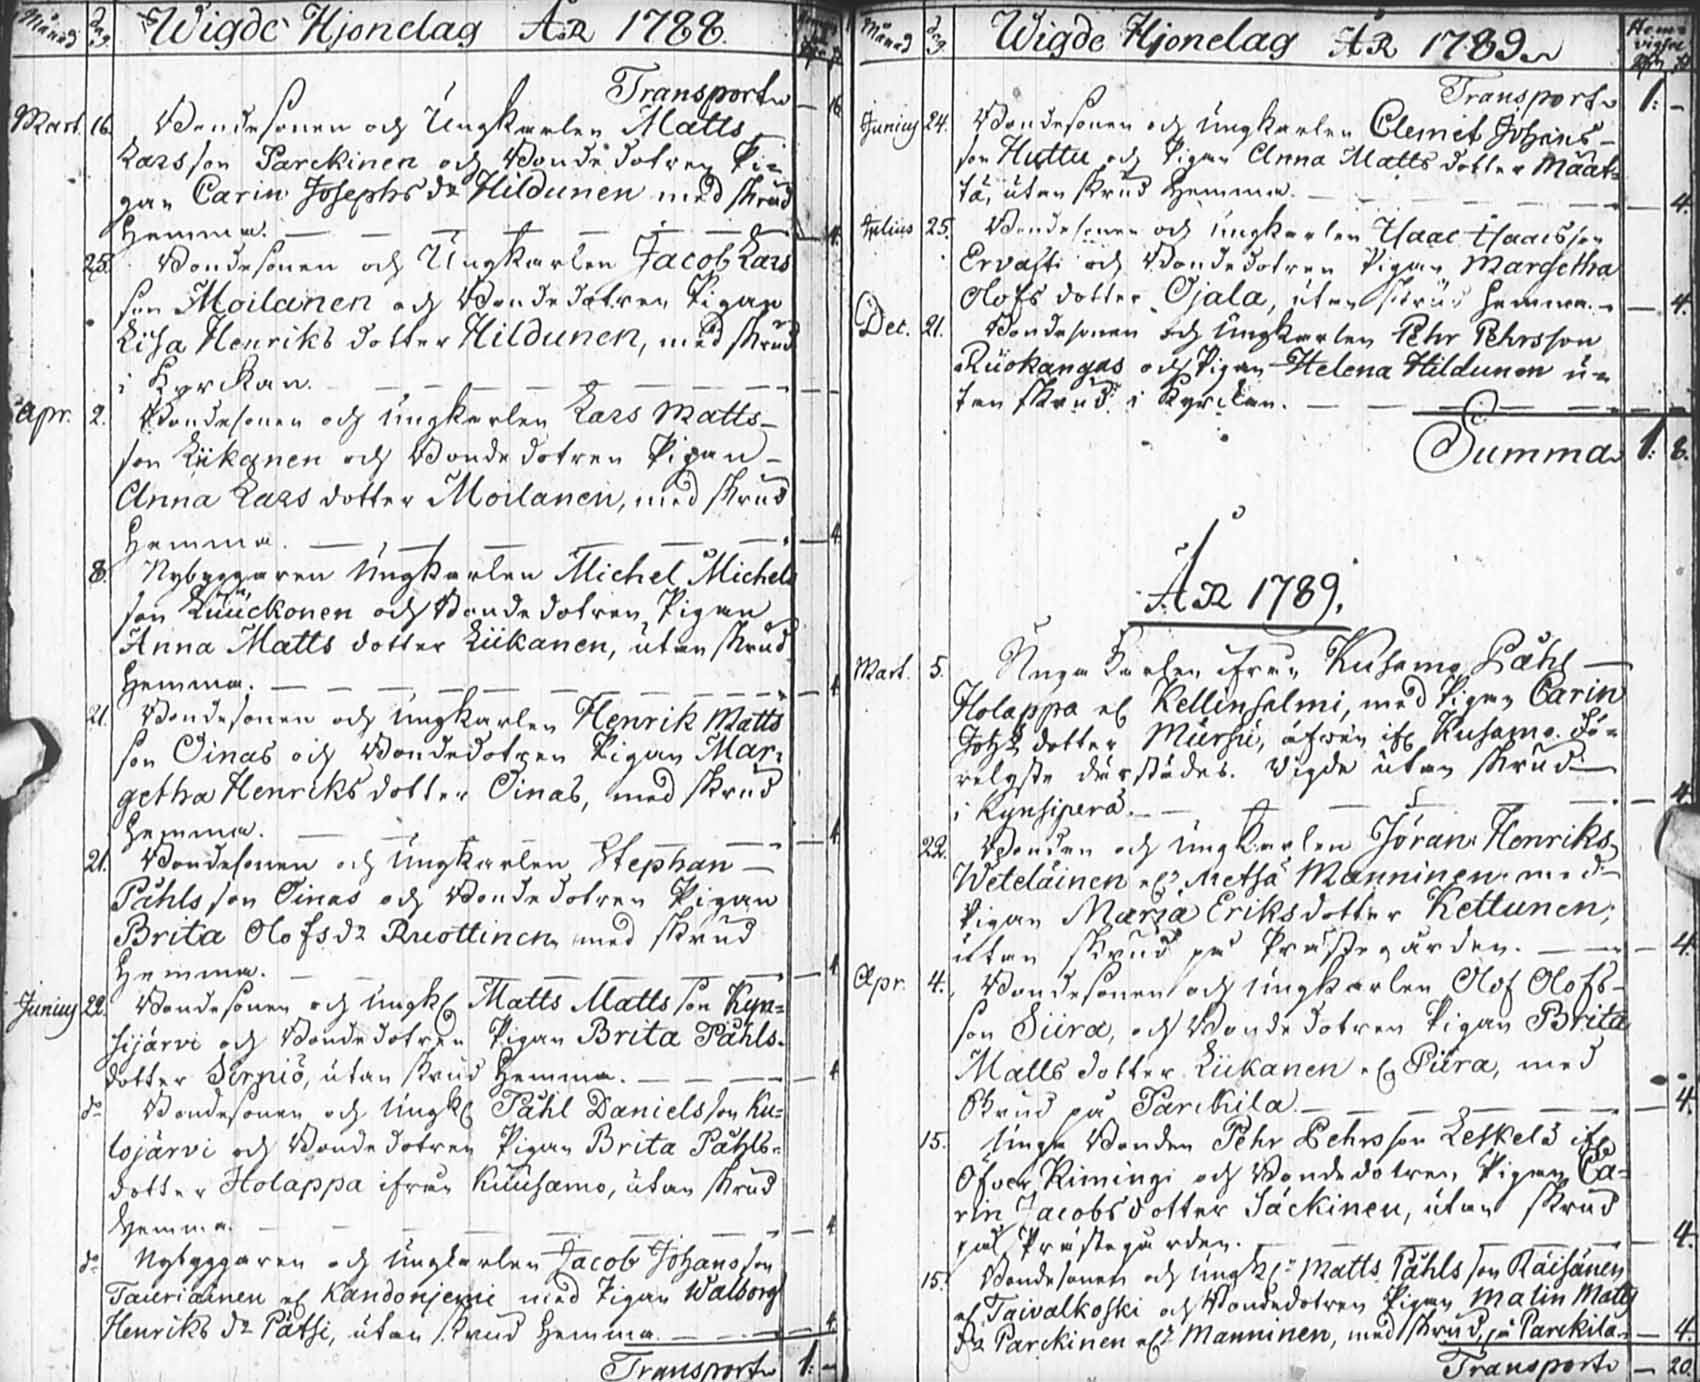 Månad Dag Wigde Hjonelag ÅR 1788.
Transport — 16.
Mart. 16. Bondesonen och Ungkarlen Matts
Larsson Parckinen och Bondedotren Pi-
gan Carin Josephs dr Hildunen med skrud
hemma. — 4.
25. Bondesonen och Ungkarlen Jacob Lars
son Moilanen och Bondedotren Pigan
Lisa Henriks dotter Hildunen, med skrud
i Kyrckan.
Apr. 2. Bondesonen och Ungkarlen Lars Matts-
son Liikanen och Bondedotren Pigan
Anna Lars dotter Moilanen, med skrud
hemma. — 4.
8. Nybyggaren Ungkarlen Michel Michels
son Luuckonen och Bondedotren Pigan
Anna Matts dotter Liikanen, utan skrud
hemma. — 4
21. Bondesonen och Ungkarlen Henrik Matts
son Oinas och Bondedotren Pigan Mar-
getha Henriks dotter Oinas, med skrud
hemma. — 4
21. Bondesonen och Ungkarlen Stephan
Påhlsson Oinas och Bondedotren Pigan
Brita Olofs dr Ruottinen med skrud
hemma. — 4
Junius 22. Bondesonen och Ungk. Matts Mattsson Kyn-
sijärvi och Bondedotren Pigan Brita Påhls-
dotter Sirniö, utan skrud hemma. — 4
do Bondesonen och Ungk. Påhl Danielsson Ku-
lojärvi och Bondedotren Pigan Brita Påhls-
dotter Holappa ifrån Kuusamo, utan skrud
hemma. — 4
do Nybyggaren och Ungkarlen Jacob Johansson
Tauriainen el. Kandonjemi med Pigan Walborg
Henriks dr Pätsi, utan skrud hemma. — 4
Transport 1: —
Månad Dag Wigde Hjonelag ÅR 1789.
Transport 1: —
Junius 24. Bondesonen och Ungkarlen Clemet Johans-
son Huttu och Pigan Anna Matts dotter Määt-
tä, utan skrud hemma. — 4.
Julius 25. Bondesonen och Ungkarlen Isaac Isaacsson
Ervasti och Bondedotren Pigan Margetha
Olofs dotter Ojala, utan skrud hemma. — 4.
Dec. 21. Bondesonen och Ungkarlen Pehr Pehrsson
Ruokangas och Pigan Helena Hildunen u-
tan skrud i Kyrckan.
Summa 1: 8.
ÅR 1789.
Mart. 5. Unga Karlen ifrån Kusamo Påhl
Holappa el. Kellinsalmi, med Pigan Carin
Joh. dotter Mursu, äfven if. Kusamo. Lö-
relyste därstädes. Vigde utan skrud
i Kynsiperä. — 4.
22. Bonden och Ungkarlen Jöran Henriks.
Weteläinen el. Metsä Manninen med
Pigan Maria Eriksdotter Kettunen,
utan skrud på Prästegården. — 4.
Apr. 4. Bondesonen och Ungkarlen Olof Olofs-
son Siira, och Bondedotren Pigan Brita
Matts dotter Liikanen el. Piira, med
Skrud på Parckila — 4.
15. Unga Bonden Pehr Pehrsson Leskelä if.
Ofver Kimingi och Bondedotren Pigan Ca-
rin Jacobsdotter Säckinen, utan skrud
på Prästegården. — 4.
15. Bondesonen och Ungk. Matts Påhlsson Räisänen
el. Taivalkoski och Bondedotren Pigan Malin Matts
dr Parckinen el. Manninen, med skrud på Parckila. — 4.
Transport — 20.